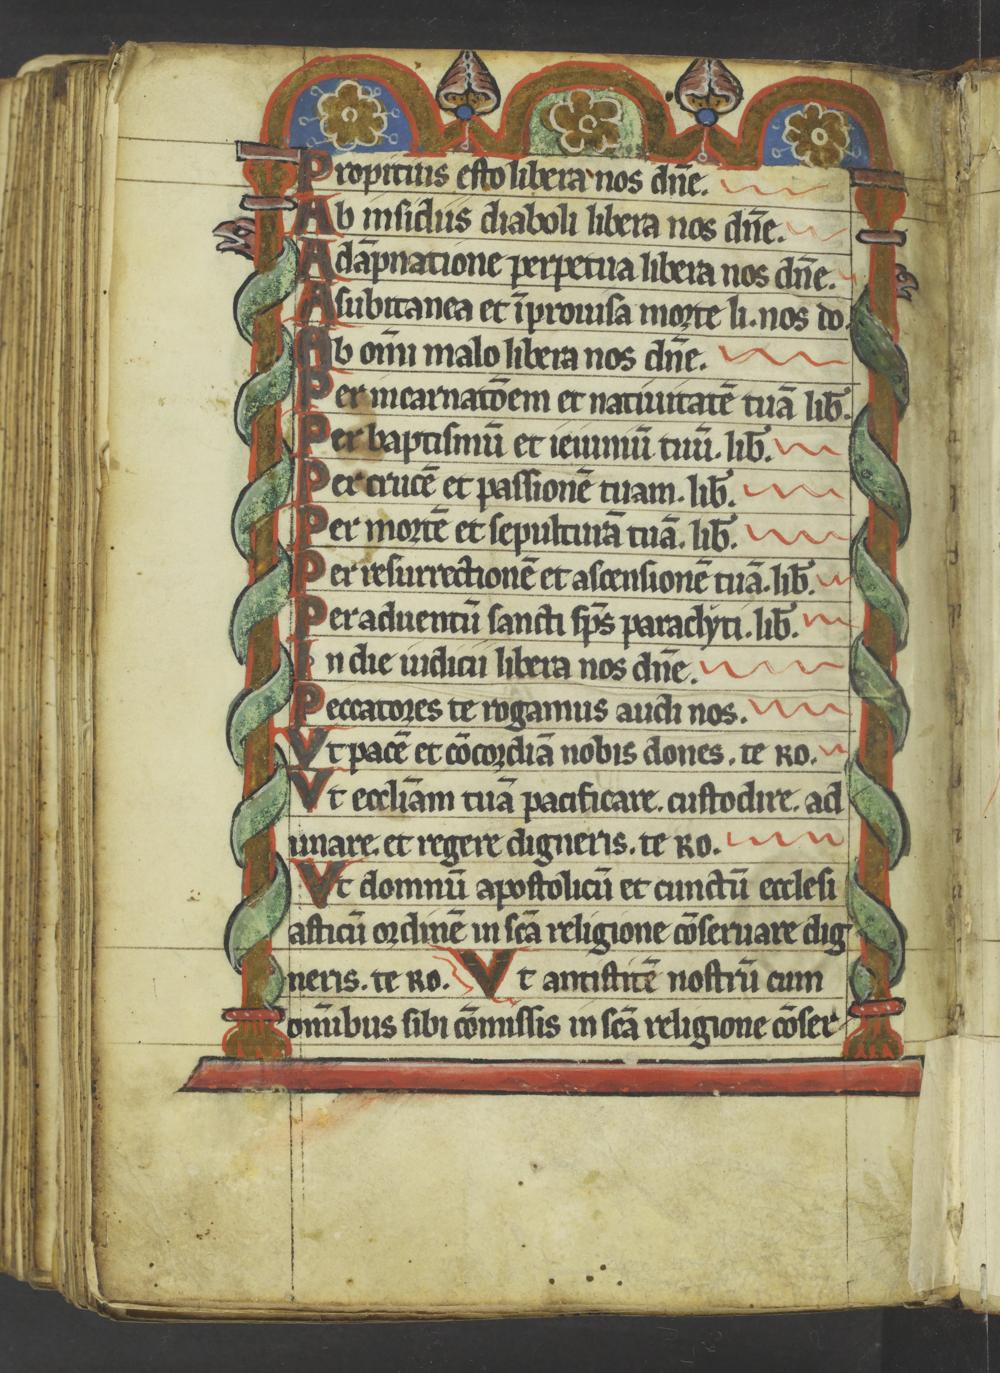 Propitius esto libera nos dn̄e.
Ab insidiis diaboli libera nos dn̄e.
A dāpnatione perpetua libera nos dn̄e.
A subitanea et īprouisa morte li. nos do.
Ab om̄i malo libera nos dn̄e.
Per incarnatōem et natiuitatē tuā lib̄.
Per baptismū et ieiuniū tuū. lib̄.
Per crucē et passionē tuam. lib̄.
Per mortē et sepulturā tuā. lib̄.
Per resurrectionē et ascensionē tuā. lib̄.
Per aduentū sancti sp̄s paraclyti. lib̄.
In die iudicii libera nos dn̄e.
Peccatores te rogamus audi nos.
Vt pacē et cōcordiā nobis dones. te ro.
Vt eccl̄iam tuā pacificare. custodire. ad
unare. et regere digneris. te ro.
Vt domnū apostolicū et cunctū ecclesi
asticū ordinē in sc̄a religione cōseruare dig
neris. te ro. Vt antistitē nostrū cum
om̄ibus sibi cōmissis in sc̄a religione cōser